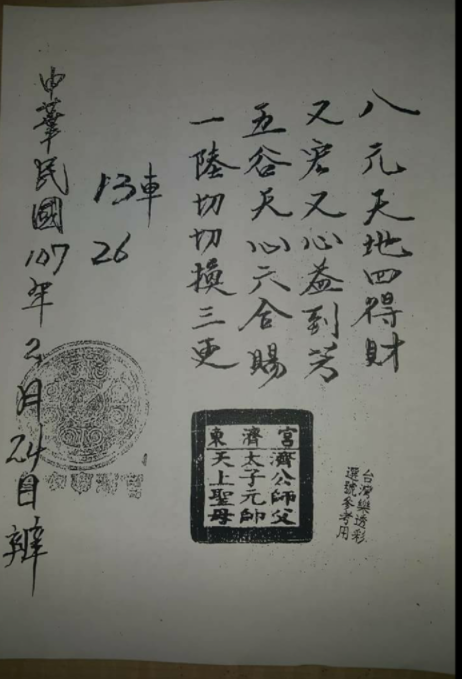 八元天地四得財
又宏又心益到芳
五谷天心六合賜
一陸切切換三更
13車
26
中華民國107年2月24日辦
台灣樂透彩
選號參考用
東濟宮
濟公師父
太子元帥
天上聖母